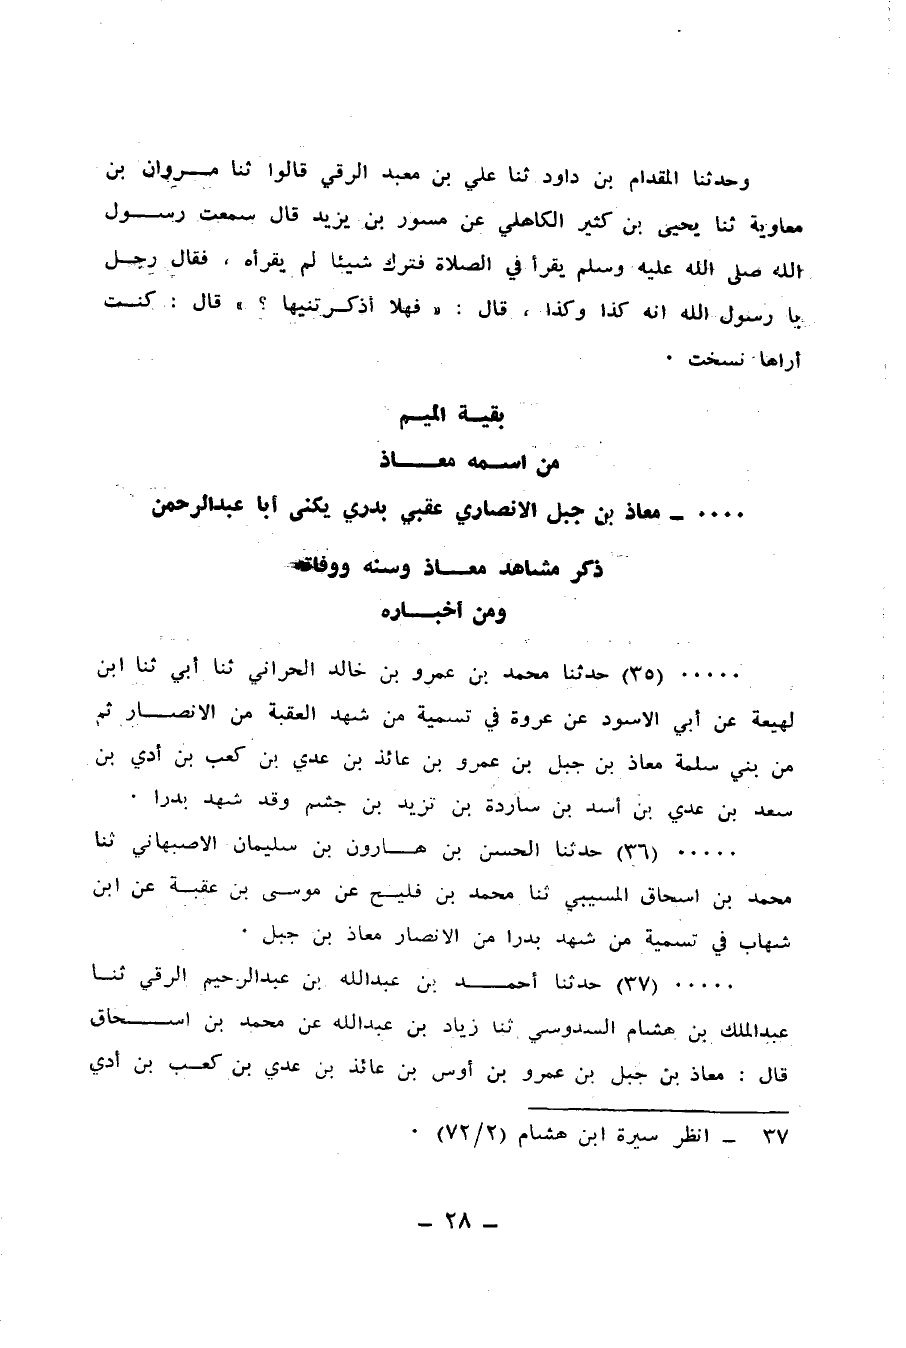 وحدثنا المقدام بن داود ثنا علي بن معبد الرقي قالوا ثنا مـــروان بن
معاوية ثنا يحيى بن كثير الكاهلي عن مسور بن يزيد قال سمعت رســـول
الله صلى الله عليه وسلم يقرأ في الصلاة فترك شيئا لم يقرأه ، فقال رجـل
يا رسول الله انه كذا وكذا ، قال : « فهلا أذكـرتنيها ؟ » قال : كنـت
أراها نسخت ٠
بقيـة الميـم
من اسـمه معـــاذ
٠٠٠٠ ـ معاذ بن جبل الانصاري عقبي بدري يكنى أبا عبدالرحمن
ذكر مشاهد معـــاذ وسنه ووفاته
ومن أخبـــاره
٠٠٠٠٠ (٣٥) حدثنا محمد بن عمرو بن خالد الحراني ثنا أبي ثنا ابن
لهيعة عن أبي الاسود عن عروة في تسمية من شهد العقبة من الانصـــار ثم
من بني سلمة معاذ بن جبل بن عمرو بن عائذ بن عدي بن كعب بن أدي بن
سعد بن عدي بن أسد بن ساردة بن تزيد بن جشم وقد شهد بدرا ٠
٠٠٠٠٠ (٣٦) حدثنا الحسن بن هـــارون بن سليمان الاصبهاني ثنا
محمد بن اسحاق المسيبي ثنا محمد بن فليـح عن موسـى بن عقبـة عن ابن
شهاب في تسمية من شهد بدرا من الانصار معاذ بن جبل ٠
٠٠٠٠٠ (٣٧) حدثنا أحمـــد بن عبدالله بن عبدالرحيم الرقي ثنـا
عبدالملك بن هشام السدوسي ثنا زياد بن عبدالله عن محمد بن اســـحاق
قال : معاذ بن جبل بن عمرو بن أوس بن عائذ بن عدي بن كعـب بن أدي
٣٧ ـ انظر سيرة ابن هشام (٧٢/٢) ٠
ـ ٢٨ ـ